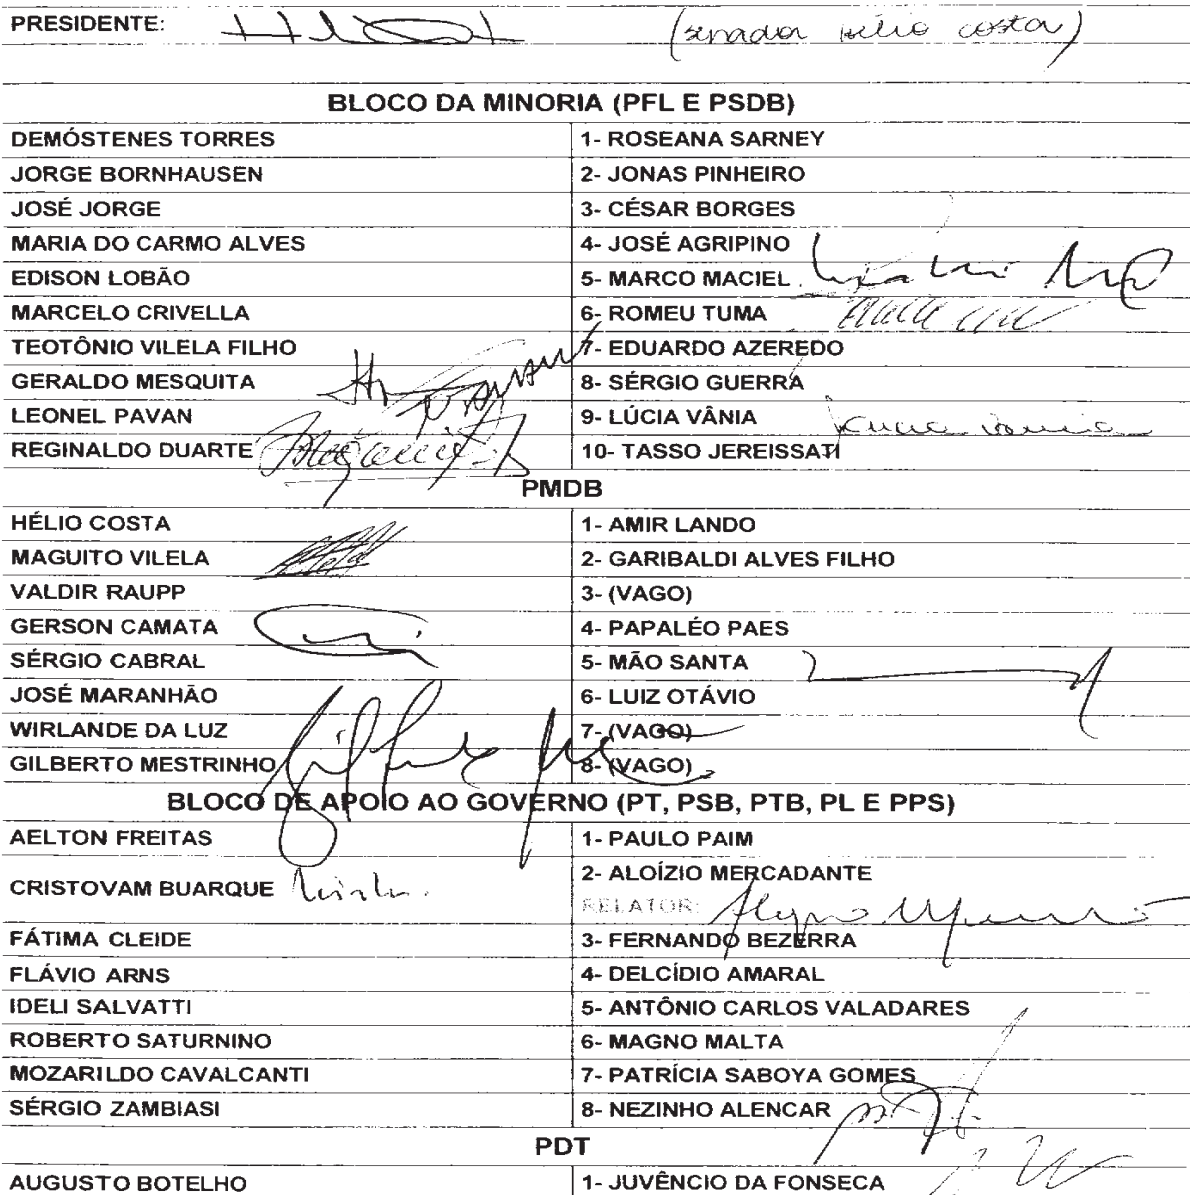 PRESIDENTE: (senador Hélio Costa)
BLOCO DA MINORIA (PFL E PSDB)
DEMÓSTENES TORRES 1- ROSEANA SARNEY
JORGE BORNHAUSEN 2- JONAS PINHEIRO
JOSÉ JORGE 3- CÉSAR BORGES
MARIA DO CARMO ALVES 4- JOSÉ AGRIPINO
EDISON LOBÃO 5- MARCO MACIEL
MARCELO CRIVELLA 6- ROMEU TUMA
TEOTÔNIO VILELA FILHO 7- EDUARDO AZEREDO
GERALDO MESQUITA 8- SÉRGIO GUERRA
LEONEL PAVAN 9- LÚCIA VÂNIA
REGINALDO DUARTE 10- TASSO JEREISSATI
PMDB
HÉLIO COSTA 1- AMIR LANDO
MAGUITO VILELA 2- GARIBALDI ALVES FILHO
VALDIR RAUPP 3- (VAGO)
GERSON CAMATA 4- PAPALÉO PAES
SÉRGIO CABRAL 5- MÃO SANTA
JOSÉ MARANHÃO 6- LUIZ OTÁVIO
WIRLANDE DA LUZ 7- (VAGO)
GILBERTO MESTRINHO 8- (VAGO)
BLOCO DE APOIO AO GOVERNO (PT, PSB, PTB, PL E PPS)
AELTON FREITAS 1- PAULO PAIM
CRISTOVAM BUARQUE 2- ALOÍZIO MERCADANTE
RELATOR:
FÁTIMA CLEIDE 3- FERNANDO BEZERRA
FLÁVIO ARNS 4- DELCÍDIO AMARAL
IDELI SALVATTI 5- ANTÔNIO CARLOS VALADARES
ROBERTO SATURNINO 6- MAGNO MALTA
MOZARILDO CAVALCANTI 7- PATRÍCIA SABOYA GOMES
SÉRGIO ZAMBIASI 8- NEZINHO ALENCAR
PDT
AUGUSTO BOTELHO 1- JUVÊNCIO DA FONSECA